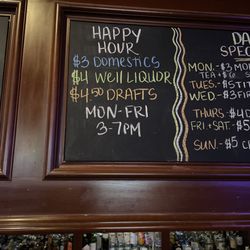 HAPPY
HOUR
$3 DOMESTICS
$4 WELL LIQUOR
$4.50 DRAFTS
MON-FRI
3-7PM
DA
SPEC
MON.-$3
TEA +
TUES.-$
WED.-$3
THURS.-$4
FRI+SAT.-$5
SUN.-$5